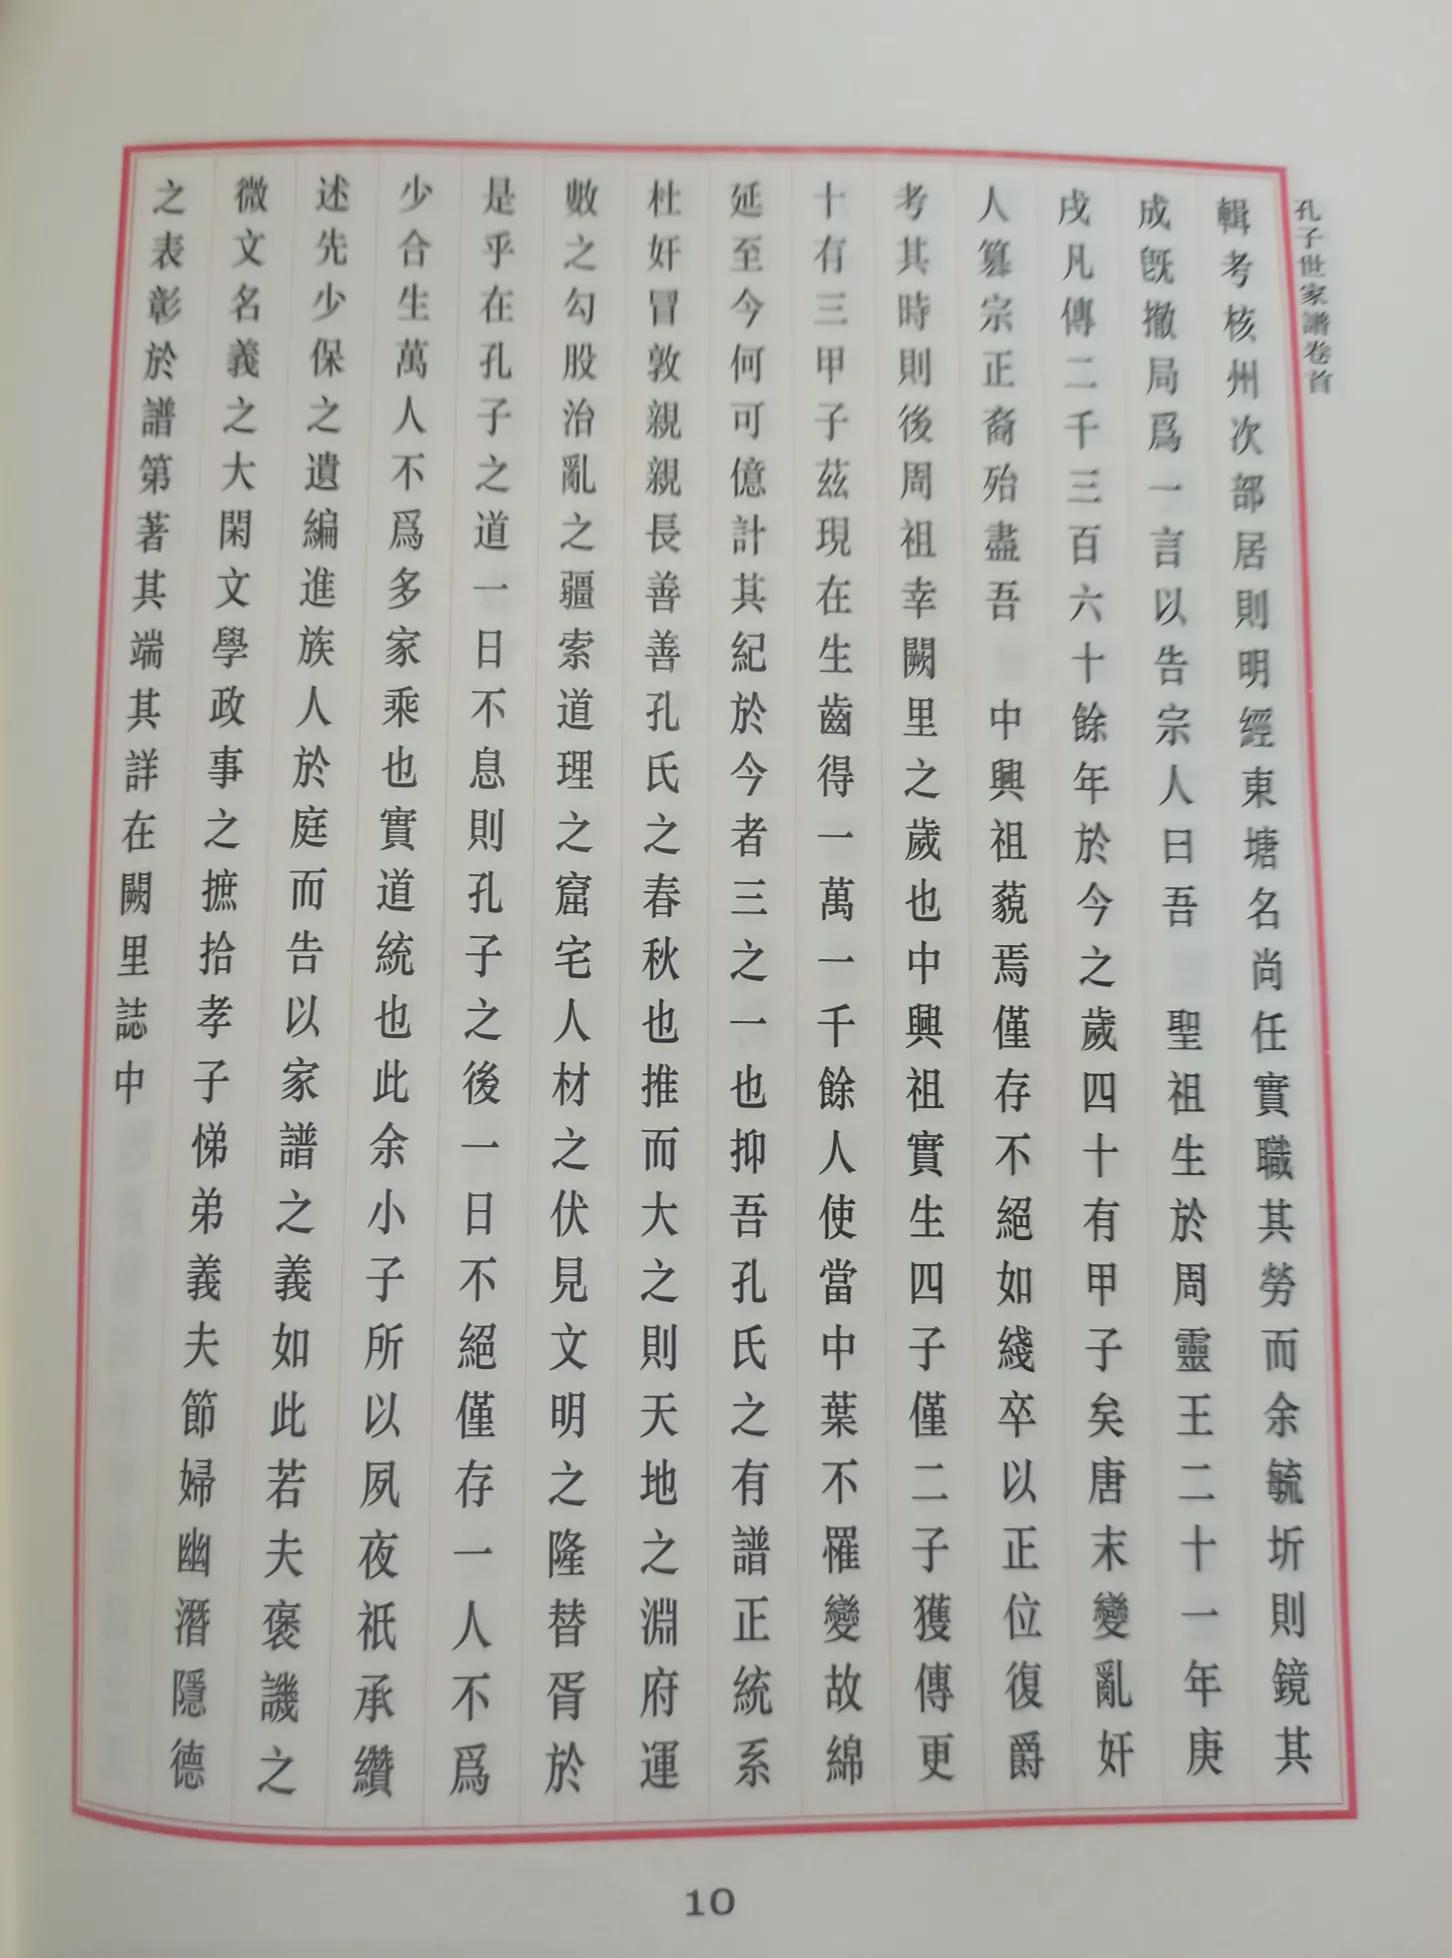 孔子世家譜卷首
輯考核州次部居則明經東塘名尚任實職其勞而余毓圻則鏡其
成旣撤局爲一言以告宗人曰吾　聖祖生於周靈王二十一年庚
戌凡傳二千三百六十餘年於今之歲四十有甲子矣唐末變亂奸
人篡宗正裔殆盡吾　中興祖藐焉僅存不絕如綫卒以正位復爵
考其時則後周祖幸闕里之歲也中興祖實生四子僅二子獲傳更
十有三甲子茲現在生齒得一萬一千餘人使當中葉不罹變故綿
延至今何可億計其紀於今者三之一也抑吾孔氏之有譜正統系
杜奸冒敦親親長善善孔氏之春秋也推而大之則天地之淵府運
數之勾股治亂之疆索道理之窟宅人材之伏見文明之隆替胥於
是乎在孔子之道一日不息則孔子之後一日不絕僅存一人不爲
少合生萬人不爲多家乘也實道統也此余小子所以夙夜祇承纘
述先少保之遺編進族人於庭而告以家譜之義如此若夫褒譏之
微文名義之大閑文學政事之摭拾孝子悌弟義夫節婦幽潛隱德
之表彰於譜第著其端其詳在闕里誌中
10